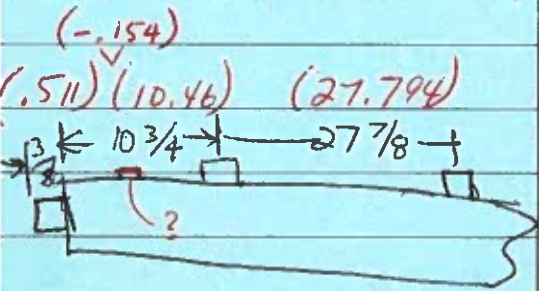 (-.154)
(.511) (10.46) (27.794)
10 3/4 27 7/8
3
?